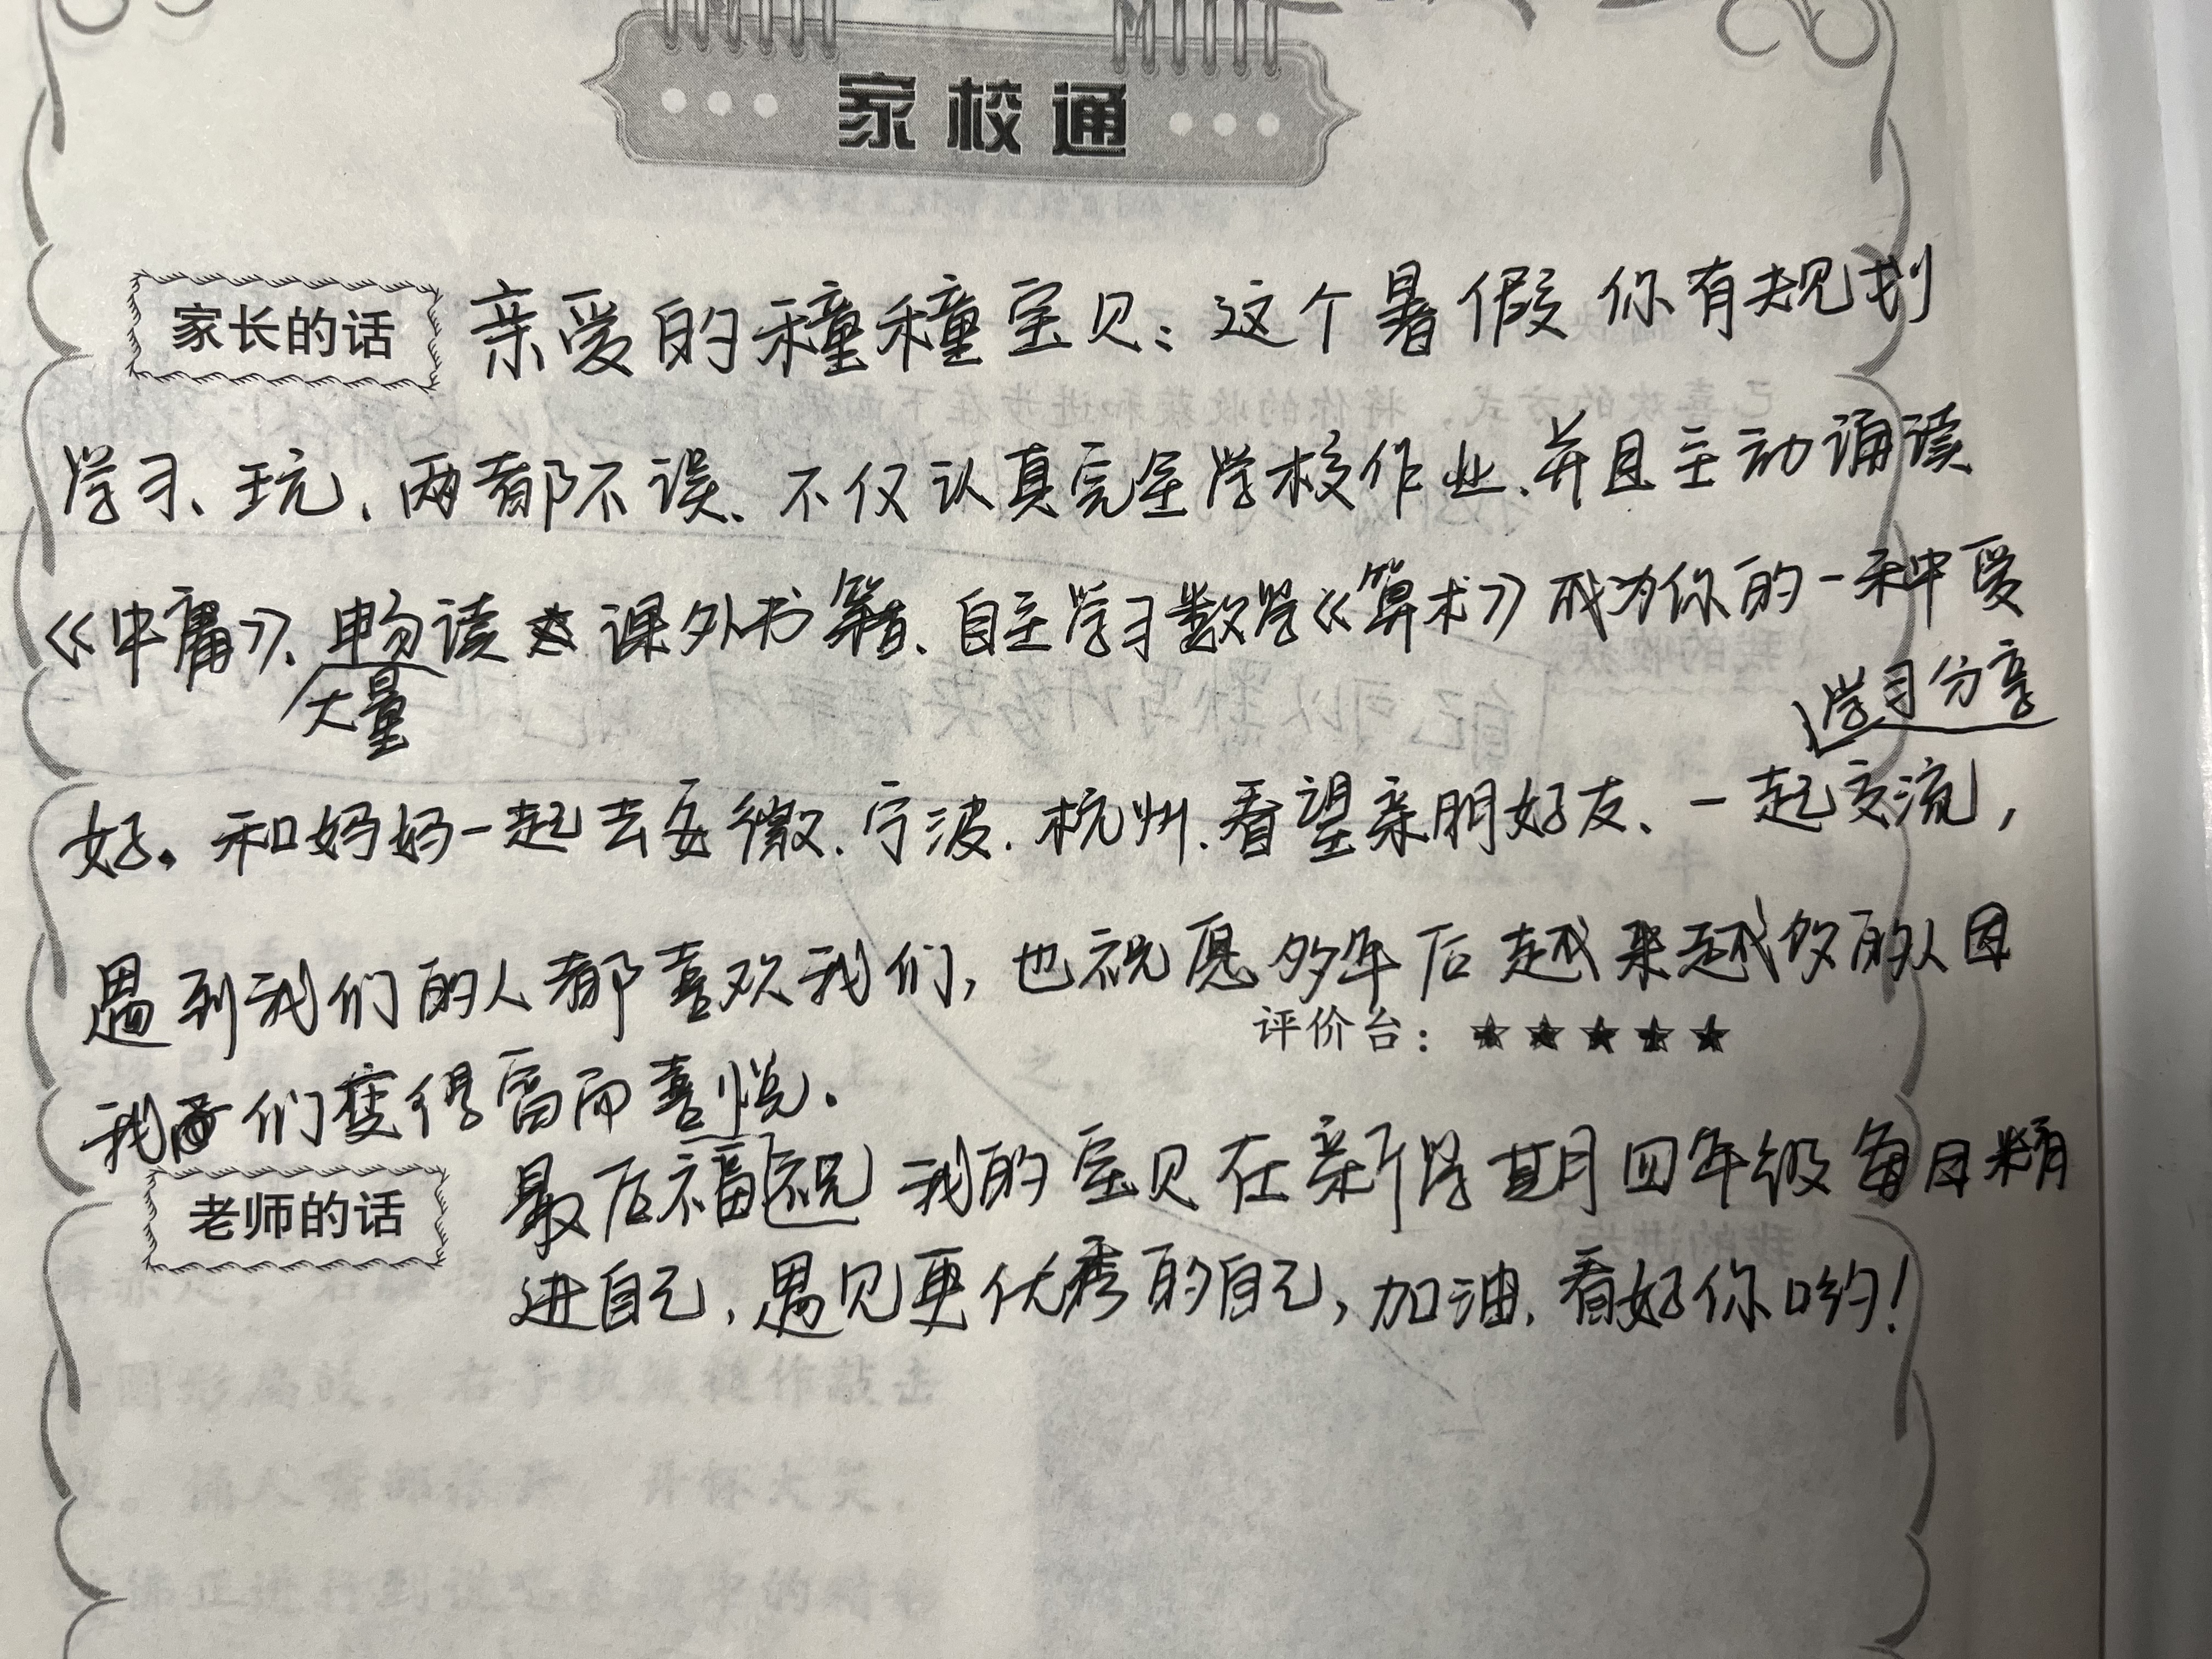 家校通
家长的话
亲爱的穜穜宝贝：这个暑假你有规划
学习、玩、两都不误、不仅认真完全学校作业、并且主动诵读
《中庸》、畅读课外书籍、自主学习数学《算术》成为你的一种爱
大量
学习分享
好。和妈妈一起去安徽、宁波、杭州、看望亲朋好友、一起交流，
遇到我们的人都喜欢我们，也祝愿多年后越来越多的人因
评价台：★★★★★
我们变得富而喜悦。
老师的话
最后福祝我的宝贝在新学期四年级每日精
进自己，遇见更优秀的自己，加油，看好你哟！